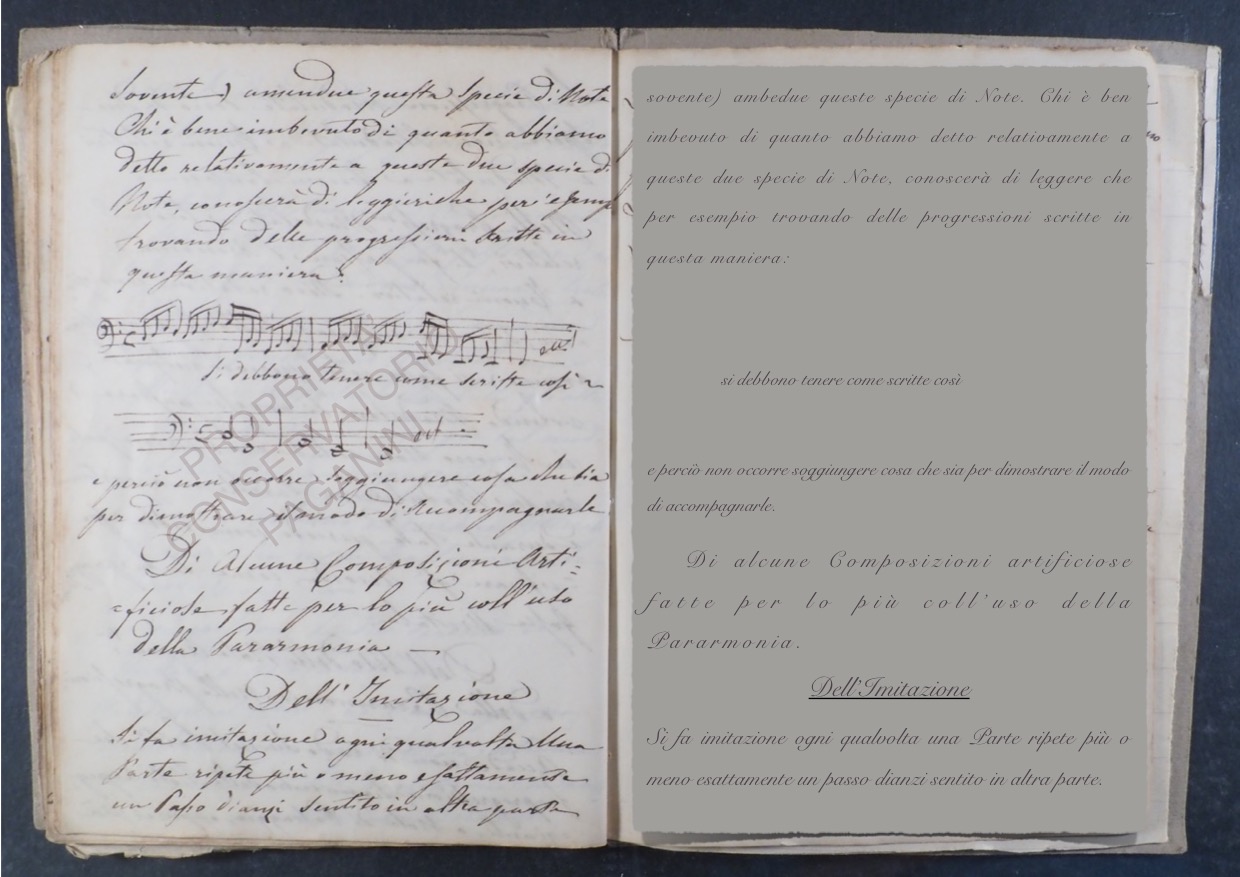 sovente) amendue questa specie di Note
Chi è bene imbevuto di quanto abbiamo
detto relativamente a queste due specie di
Note, conoscerà di leggieri che per esemp
trovando delle progressioni scritte in
questa maniera:
ecc
si debbono tenere come scritte così
ecc
e perciò non occorre soggiungere cosa che sia
per dimostrare il modo di accompagnarle
Di Alcune Composizioni Arti=
=ficiose fatte per lo più coll'uso
della Pararmonia —
Dell' Imitazione
Si fa imitazione ogni qualvolta Una
Parte ripete più o meno esattamente
un Passo dianzi sentito in altra parte
PROPRIETA'
CONSERVATORIO
PAGANINI
sovente) ambedue queste specie di Note. Chi è ben
imbevuto di quanto abbiamo detto relativamente a
queste due specie di Note, conoscerà di leggere che
per esempio trovando delle progressioni scritte in
questa maniera:
si debbono tenere come scritte così
e perciò non occorre soggiungere cosa che sia per dimostrare il modo
di accompagnarle.
Di alcune Composizioni artificiose
fatte per lo più coll'uso della
Pararmonia.
Dell'Imitazione
Si fa imitazione ogni qualvolta una Parte ripete più o
meno esattamente un passo dianzi sentito in altra parte.